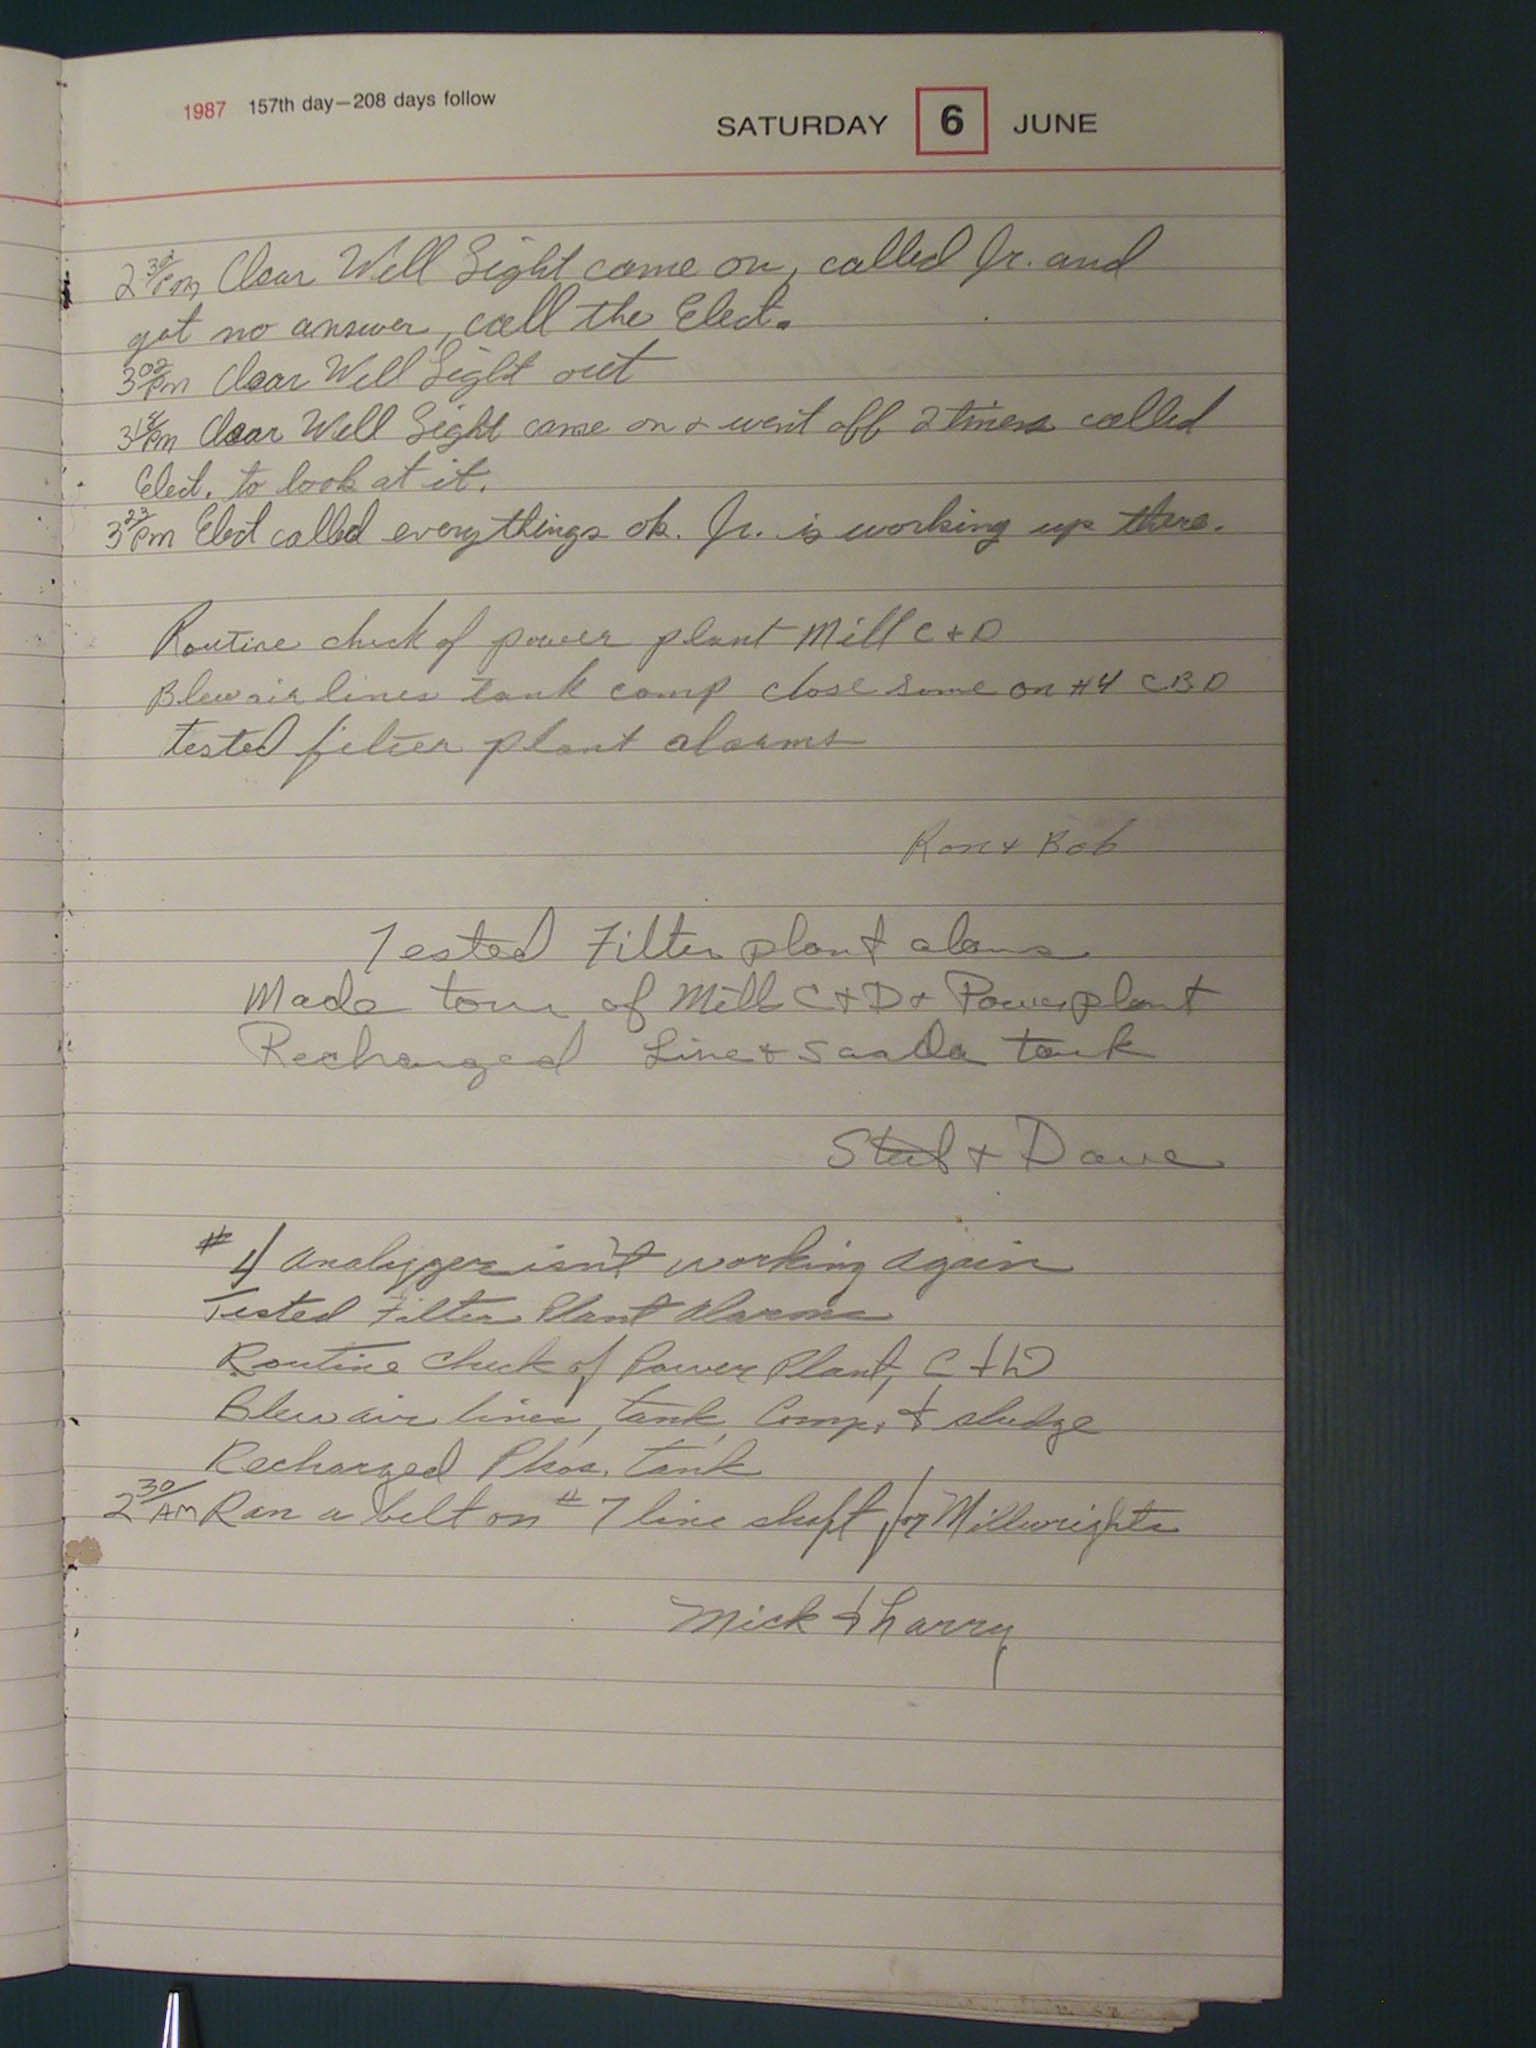 1987 157th day—208 days follow
SATURDAY 6 JUNE
2 30/Pm Clear Well Light came on, called Jr. and
got no answer, call the Elect.
3 02/Pm Clear Well Light out
Pm Clear Well Light came on & went off 2 times called
Elect. to look at it.
3 23/Pm Elect called everythings ok. Jr. is working up there.
Routine check of power plant Mill C & D
Blew air lines tank comp close some on #4 CBD
tested filter plant alarms
Ron & Bob
Tested Filter plant alams
Made tour of Mill C & D & Powerplant
Recharged Line & tank
& Dave
#4 analyzer isn't working again
Tested Filter Plant Alarms
Routine Check of Power Plant, C & D
Blew air lines, tank, Comp. & sludge
Recharged Phos. tank
2 30/AM Ran a belt on #7 line shaft for Millwrights
Mick & Larry